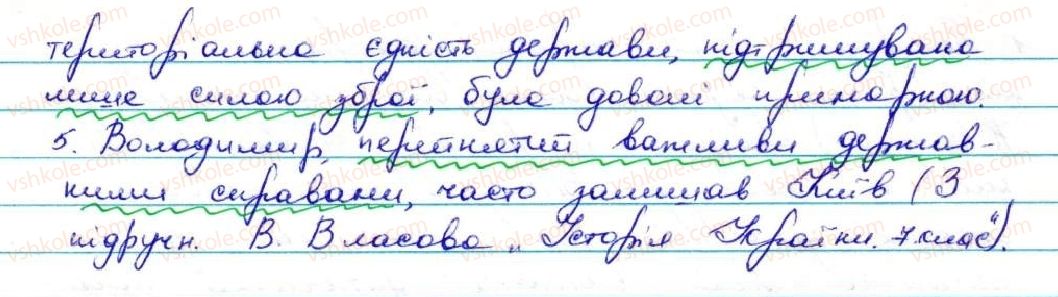 територіальна єдність держави, підтримувана
лише силою зброї, була доволі примарною.
5. Володимир, перейнятий важливи держав-
ними справами, часто залишав Київ (З
підручн. В. Власова „Історія України. 7 клас").